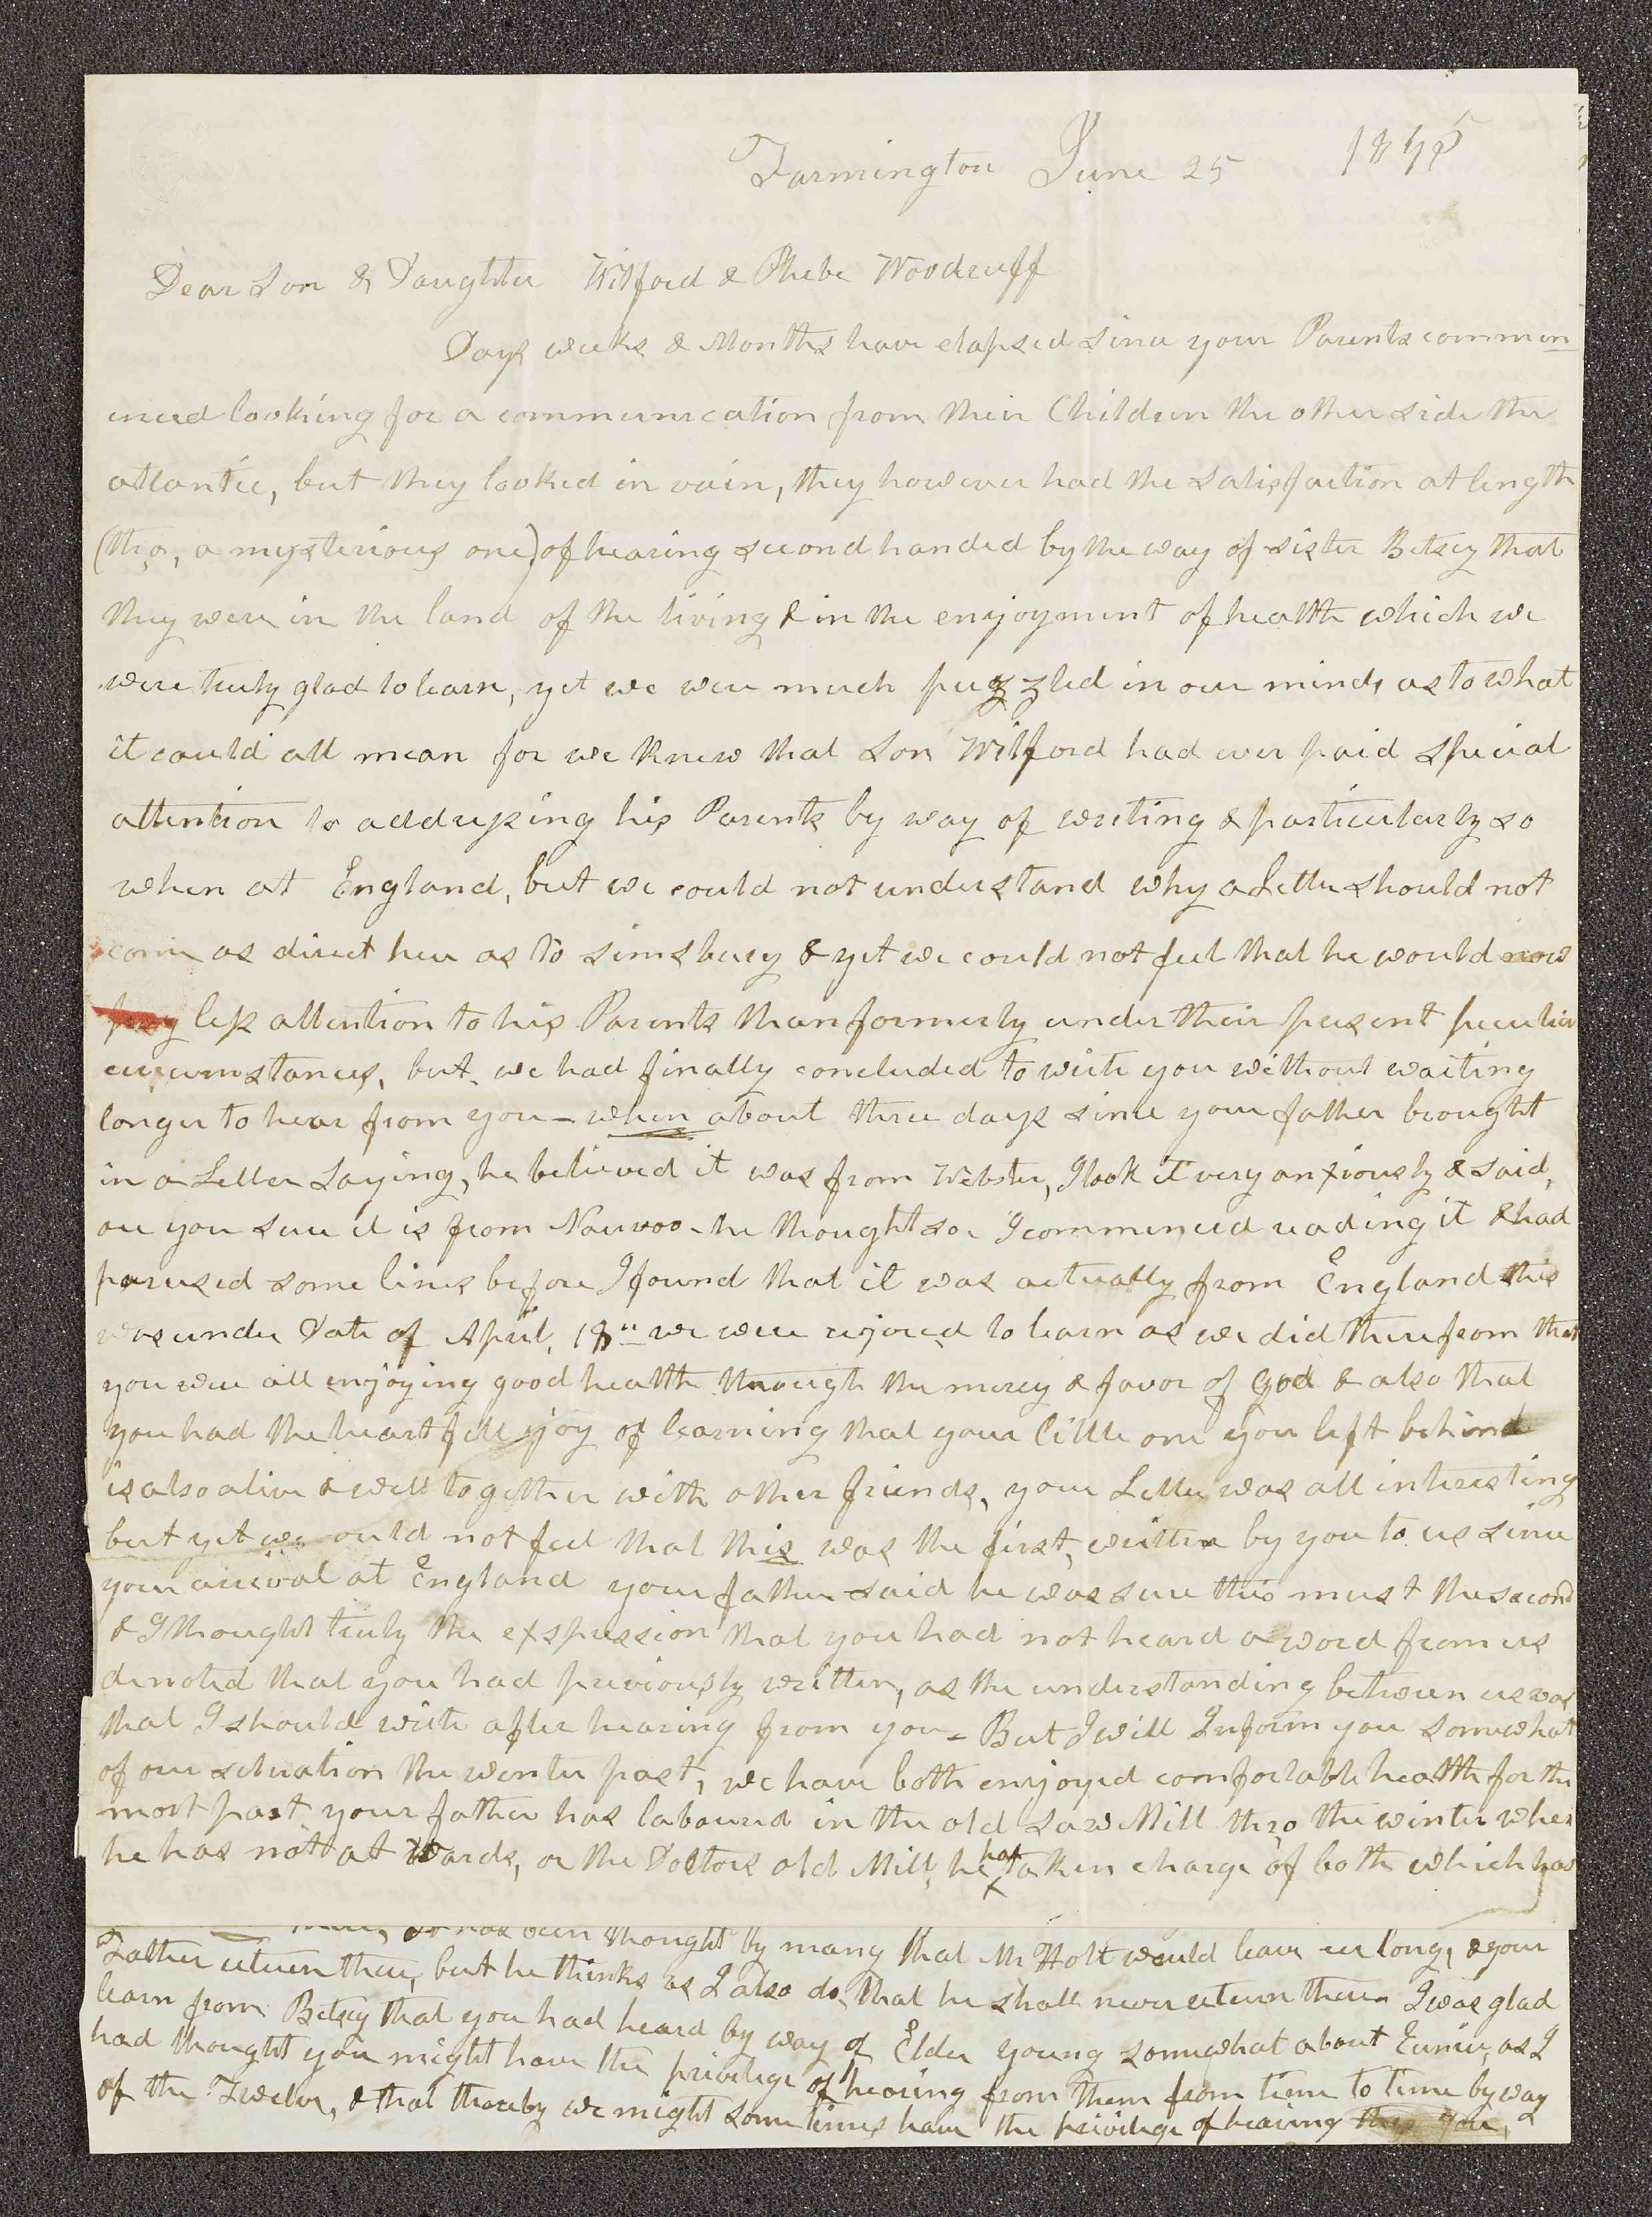 Farmington June 25 1845
Dear Son & Daughter Wilford & Phebe Woodruff
Days weeks & Months have elapsed since your Parents commen
enced looking for a communication from their Children the other side the
atlantic, but they looked in vain, they however had the satisfaction at length
(tho, a mysterious one) of hearing second handed by the way of sister Betsey that
they were in the land of the living & in the enjoyment of health which we
were truly glad to learn, yet we were much puzzled in our minds as to what
it could all mean for we knew that Son Wilford had ever paid special
attention to addressing his Parents by way of writing & particularly so
when at England, but we could not understand why a Letter should not
come as direct here as to Simsbury & yet we could not feel that he would now
pay less attention to his Parents than formerly under their present peculiar
circumstances, but we had finally concluded to write you without waiting
longer to hear from you - when about three days since your father brought
in a Letter Saying, he believed it was from Webster, I took it very anxiously & said,
are you sure it is from Nauvoo - he thought so I commenced reading it & had
parused some lines before I found that it was actually from England this
was under Date of April, 18" we were rejoiced to learn as we did therefrom that
you were all enjoying good health through the mercy & favor of God & also that
you had the heart felt joy of learning that your little one you left behind
is also alive & well together with other friends, your Letter was all interesting
but yet we ould not feel that this was the first, written by you to us since
your arrival at England your father said he was sure this must the second
& I thought truly the exspression that you had not heard a word from us
denoted that you had previously written, as the understanding between us was
that I should write after hearing from you - But I will Inform you somewhat
of our situation the winter past, we have both enjoyed comfortable health for the
most part your father has laboured in the old Saw Mill thro the winter when
he has not at Wards, or the Doctors old Mill, he has taken charge of both which has
been thought by many that Mr Holt would leave ere long, & your
Father return there, but he thinks as I also do, that he shall never return there I was glad
learn from Betsey that you had heard by way of Elder Young somewhat about Eunice, as I
had thought you might have the privilege of hearing from them from time to time by way
of the Twelve, & that thereby we might sometimes have the privilege of hearing